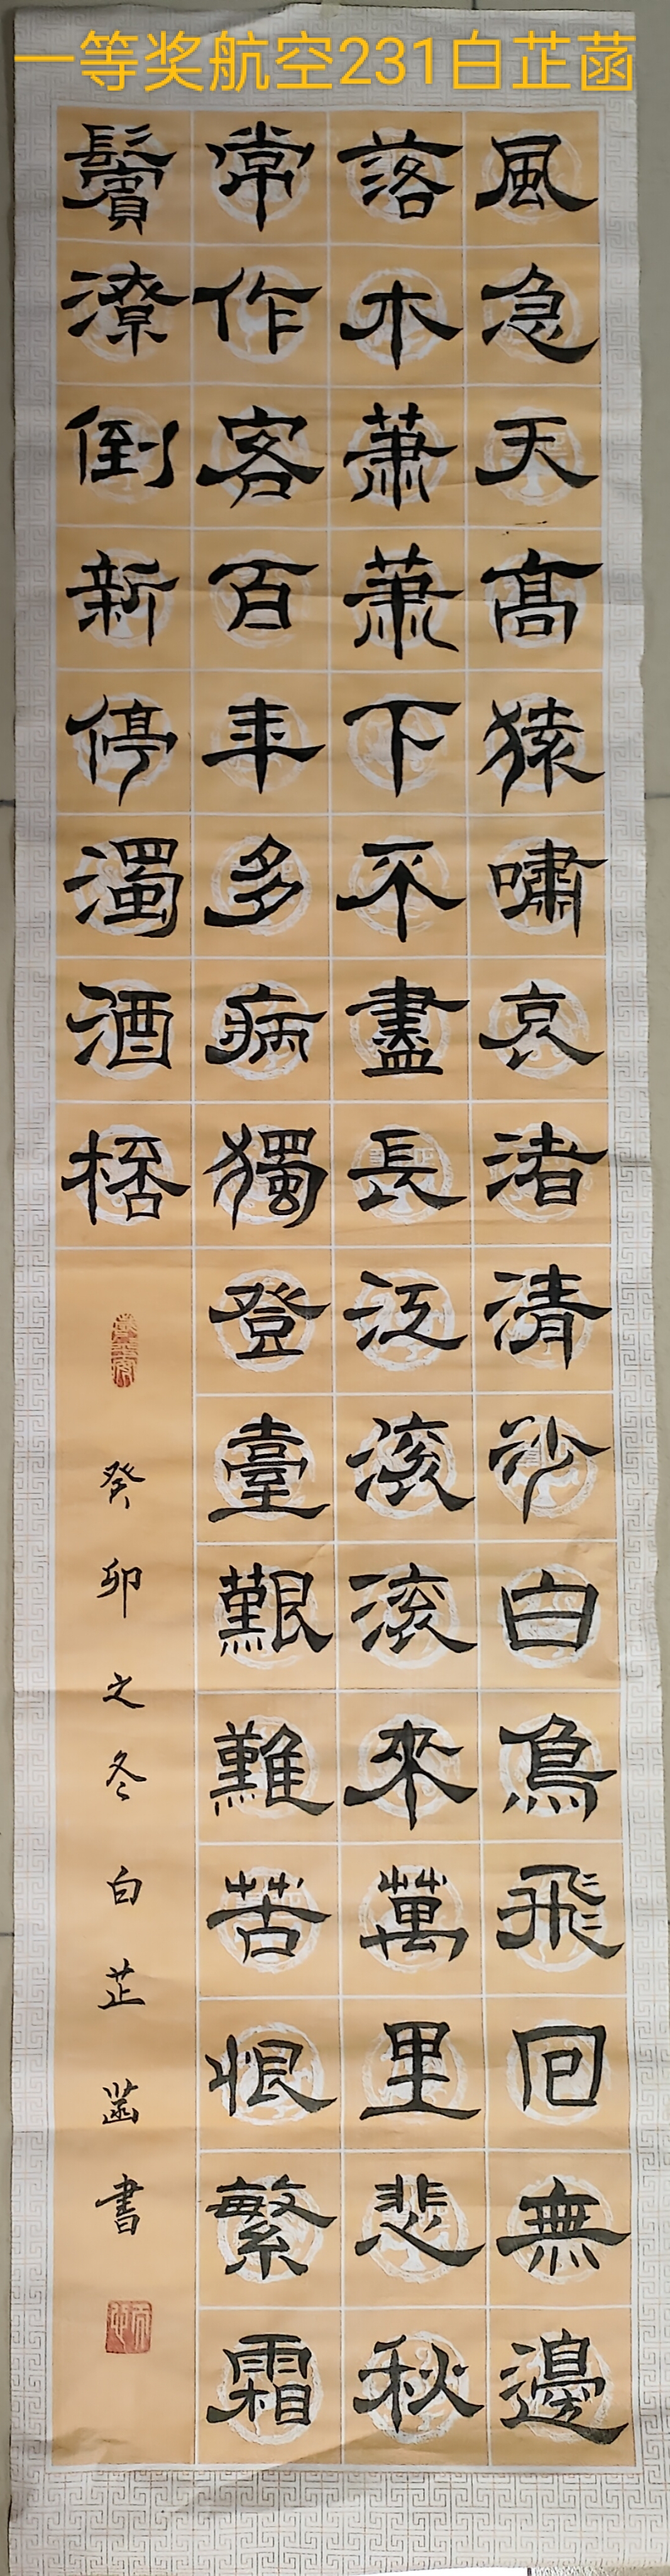 一等奖航空231白芷菡
風急天高猿嘯哀渚清沙白鳥飛回無邊
落木蕭蕭下不盡長江滾滾來萬里悲秋
常作客百年多病獨登臺艱難苦恨繁霜
鬢潦倒新停濁酒桮
癸卯之冬白芷菡書